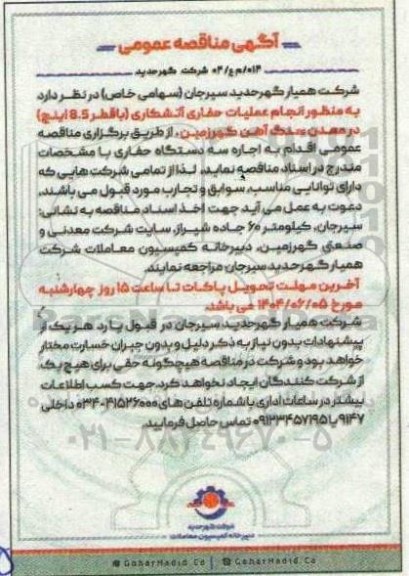 آگهی مناقصه عمومی
۰۱۴/م ع/۰۴ شرکت گهرحدید
شرکت همیار گهرحدید سیرجان (سهامی خاص) در نظر دارد
به منظور انجام عملیات حفاری آتشکاری (باقطر 8.5 اینچ)
در معدن سنگ آهن گهرزمین، از طریق برگزاری مناقصه
عمومی اقدام به اجاره سه دستگاه حفاری با مشخصات
مندرج در اسناد مناقصه نماید، لذا از تمامی شرکت هایی که
دارای توانایی مناسب، سوابق و تجارب مورد قبول می باشند،
دعوت به عمل می آید جهت اخذ اسناد مناقصه به نشانی:
سیرجان، کیلومتر ۶۰ جاده شیراز، سایت شرکت معدنی و
صنعتی گهرزمین، دبیرخانه کمیسیون معاملات شرکت
همیار گهرحدید سیرجان مراجعه نمایند.
آخرین مهلت تحویل پاکات تا ساعت ۱۵ روز چهارشنبه
مورخ ۱۴۰۴/۰۶/۰۵ می باشد.
شرکت همیار گهرحدید سیرجان در قبول یا رد هر یک از
پیشنهادات بدون نیاز به ذکر دلیل و بدون جبران خسارت مختار
خواهد بود و شرکت در مناقصه هیچگونه حقی برای هیچ یک
از شرکت کنندگان ایجاد نخواهد کرد. جهت کسب اطلاعات
بیشتر در ساعات اداری با شماره تلفن های ۴۱۵۲۶۰۰۰-۰۳۴ داخلی
۹۱۴۷ یا ۰۹۱۳۳۴۵۷۱۹۵ تماس حاصل فرمایید.
۰۲۱-۸۸۳۴۹۶۷۰-۵
شرکت گهرحدید
دبیرخانه کمیسیون معاملات
GoharHadid.Co GoharHadid.Co